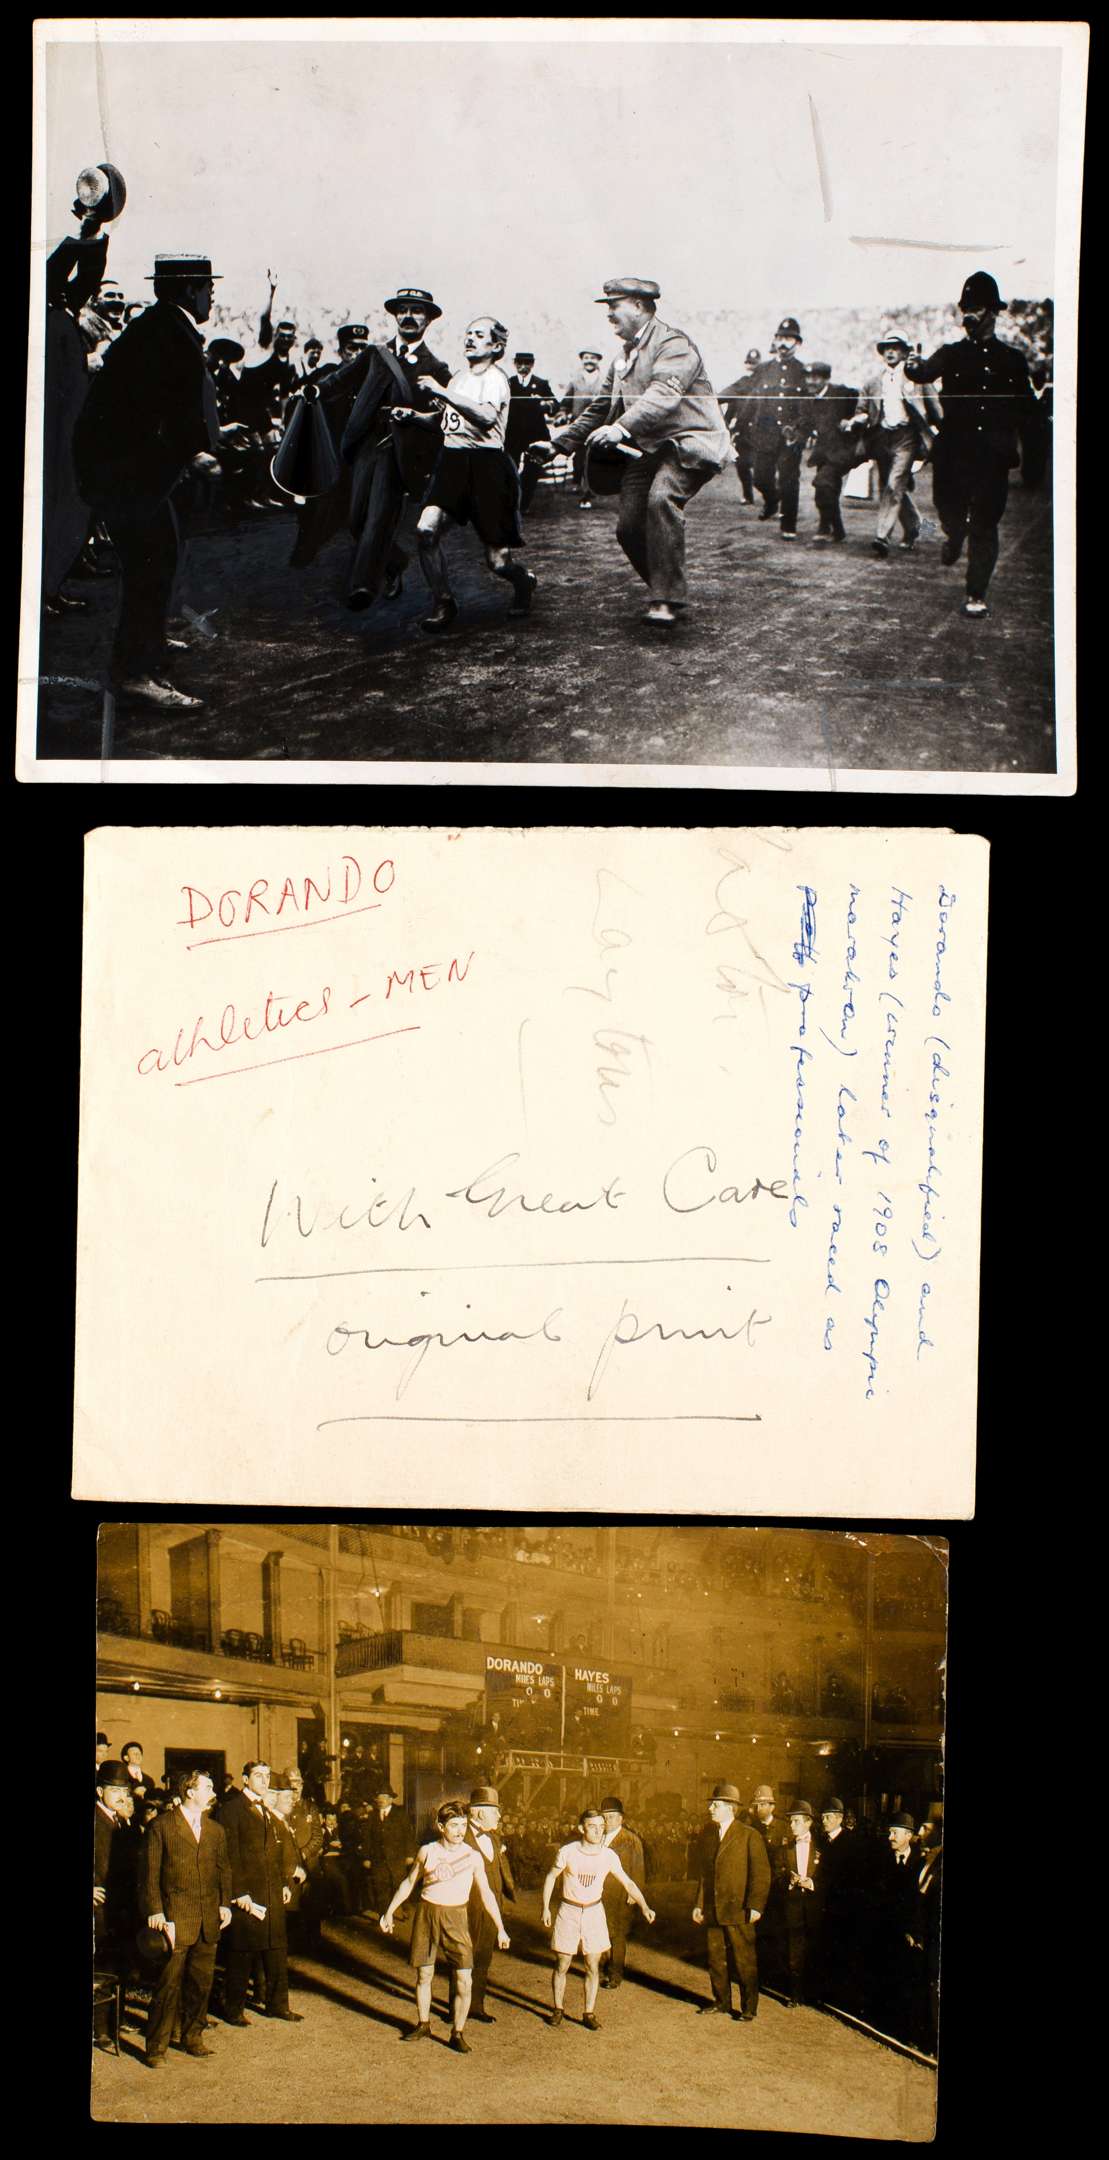 19
DORANDO
athletics - MEN
Laytus
With Great Care
original print
Dorando (disqualified) and
Hayes (winner of 1908 Olympic
marathon) later raced as
professionals
DORANDO
MILES LAPS
0 0
TIME
HAYES
MILES LAPS
0 0
TIME